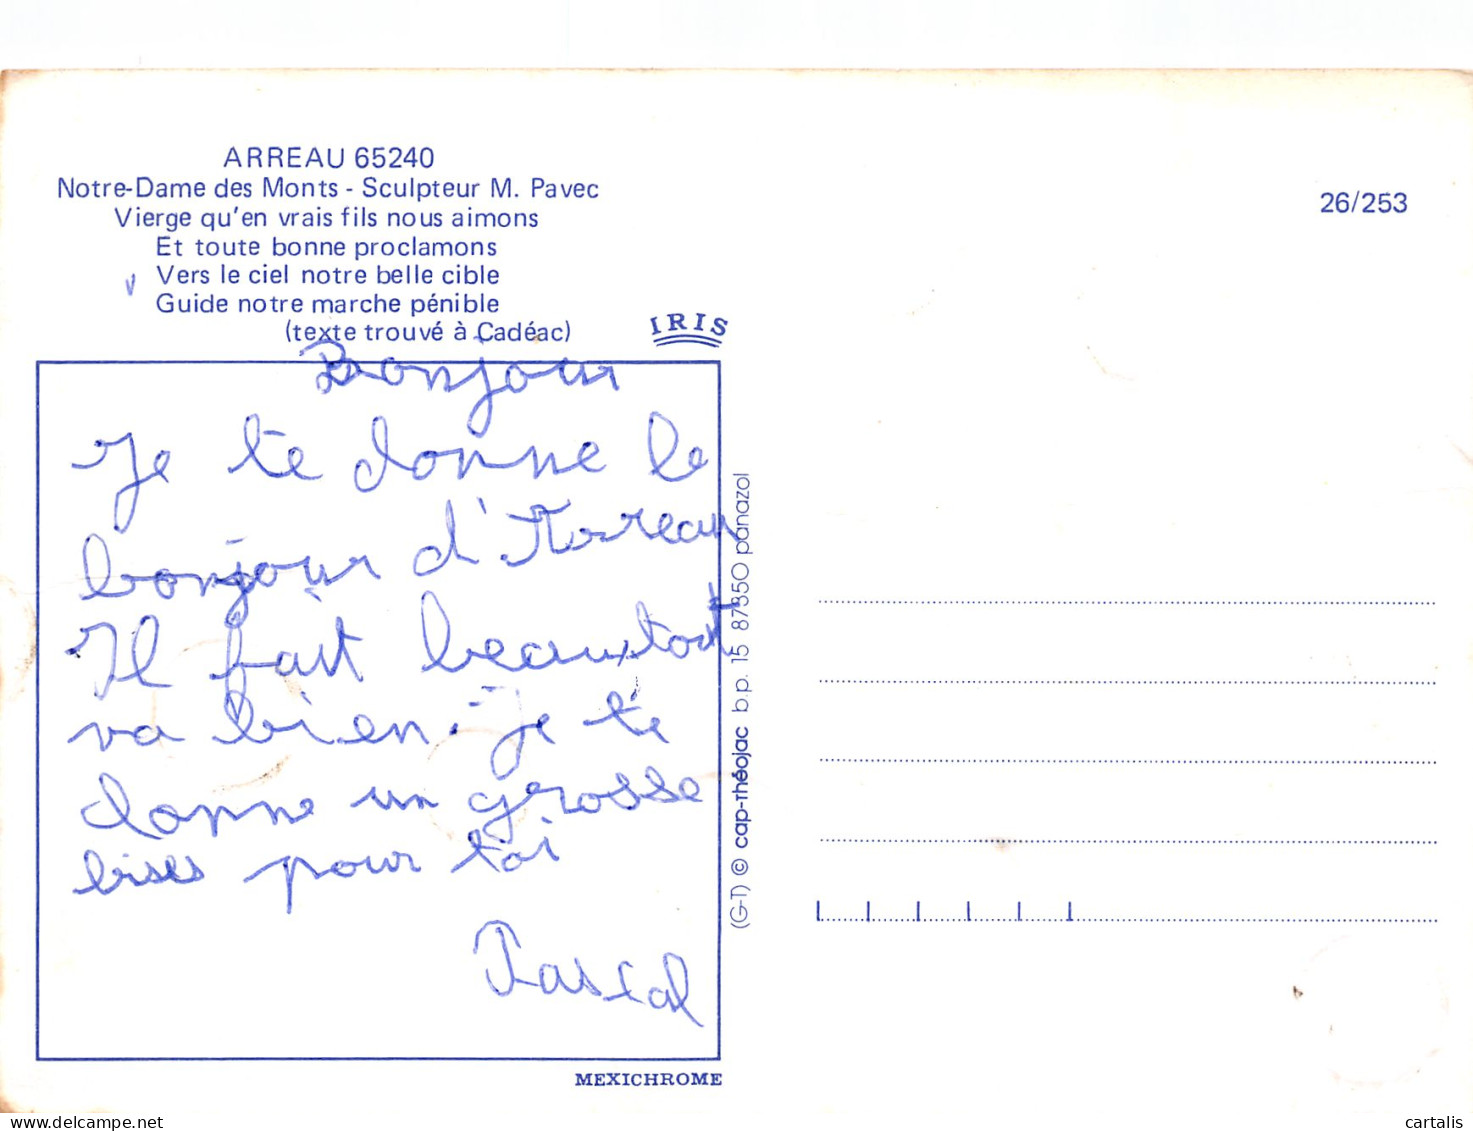 ARREAU 65240
Notre-Dame des Monts - Sculpteur M. Pavec
Vierge qu'en vrais fils nous aimons
Et toute bonne proclamons
Vers le ciel notre belle cible
Guide notre marche pénible
(texte trouvé à Cadéac)
26/253
IRIS
Bonjour
Je te donne le
bonjour d'Arreau
Il fait beau, tout
va bien. je te
donne un grosse
bises pour toi
Pascal
(G-T) © cap-théojac b.p. 15 87350 panazol
MEXICHROME
delcampe.net
cartalis